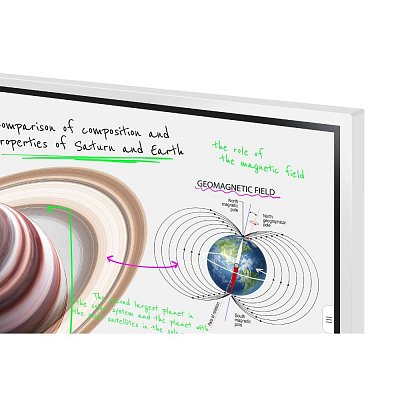 omparison of composition and
roperties of Saturn and Earth
the role of
the magnetic field
GEOMAGNETIC FIELD
North
magnetic
pole
North
geographical
pole
The second largest planet in
the solar system and the planet with
the most satellites in the solar
South
magnetic
pole
Axis of rotation